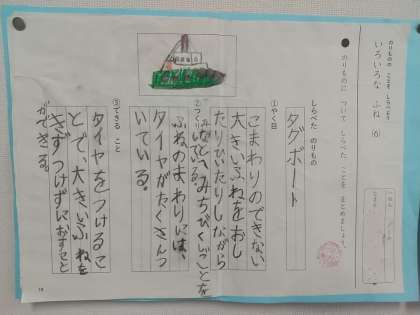 のりものの ことを しらべよう
いろいろな ふね ⑥
のりものに ついて しらべた ことを まとめましょう。
しらべた のりもの
タグボート
①やく目
こまわりのできない
大きいふねをおし
たりひいたりしながら
みなとへみちびくしごとを
②つくり
ふねのまわりには、
タイヤがたくさんつ
いている。
③できる こと
タイヤをつけるこ
とで、大きいふねを
きずつけずにおすこと
ができる。